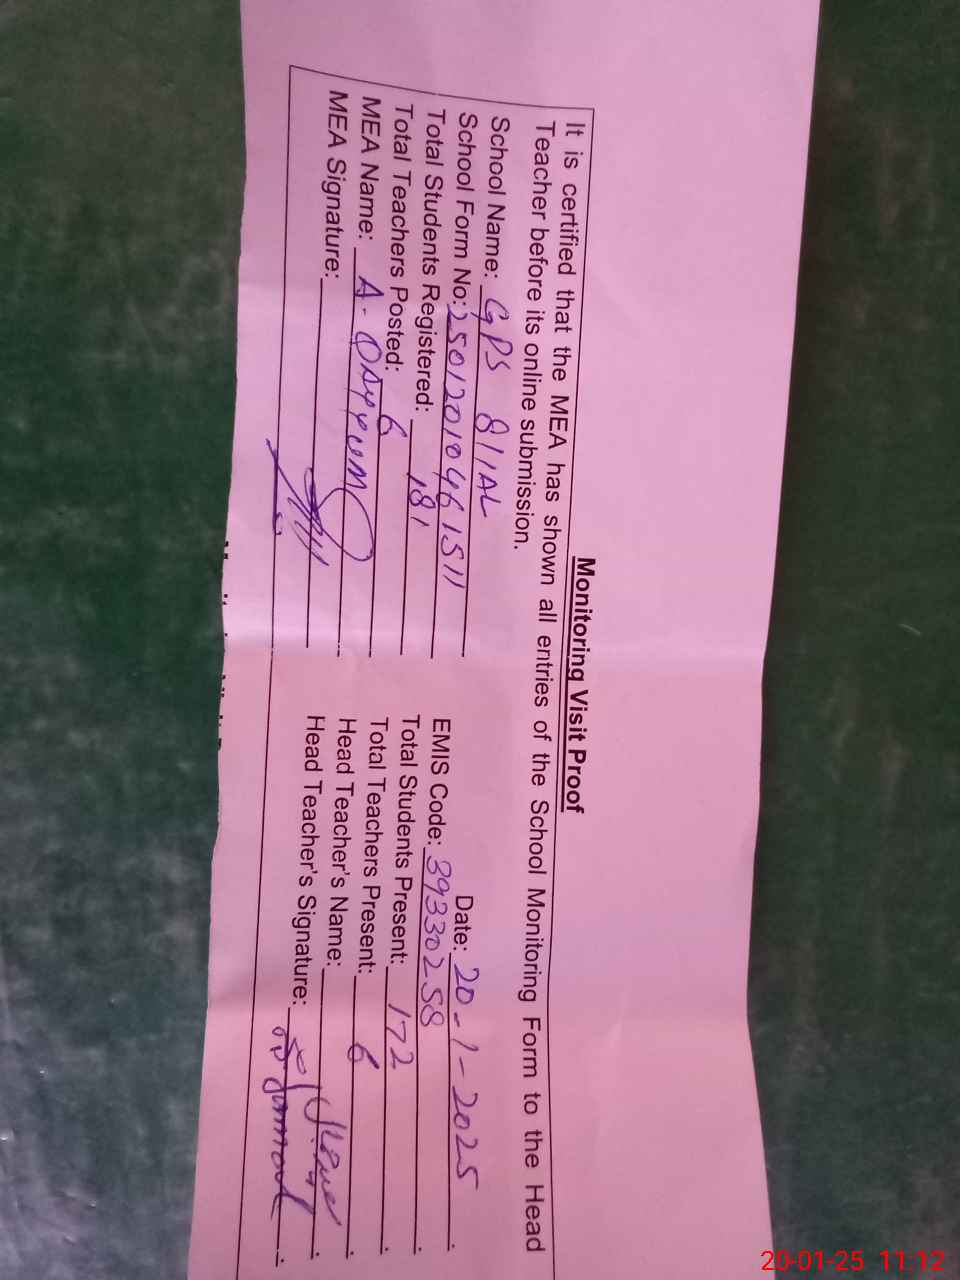 Monitoring Visit Proof
It is certified that the MEA has shown all entries of the School Monitoring Form to the Head
Teacher before its online submission.
Date: 20-1-2025
School Name: GPS 811AL
EMIS Code: 39330258
School Form No: 25012010461511
Total Students Present: 172
Total Students Registered: 181
Total Teachers Present: 6
Total Teachers Posted: 6
Head Teacher's Name:
MEA Name: A. QAYYUM
Head Teacher's Signature:
MEA Signature:
20-01-25 11:12